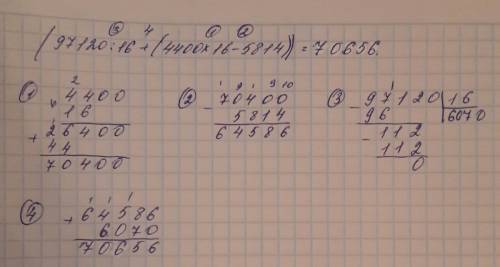 ③ 4 ① ②
(97120:16+(4400×16-5814))=70656
① ② ③ 
2
× 4400
16
+ 26400
44
70400
1 9 1 9 10
- 70400
5814
64586
1
- 97120 | 16
96 | 6070
- 112
112
0
④
1 1 1
+ 64586
6070
70656